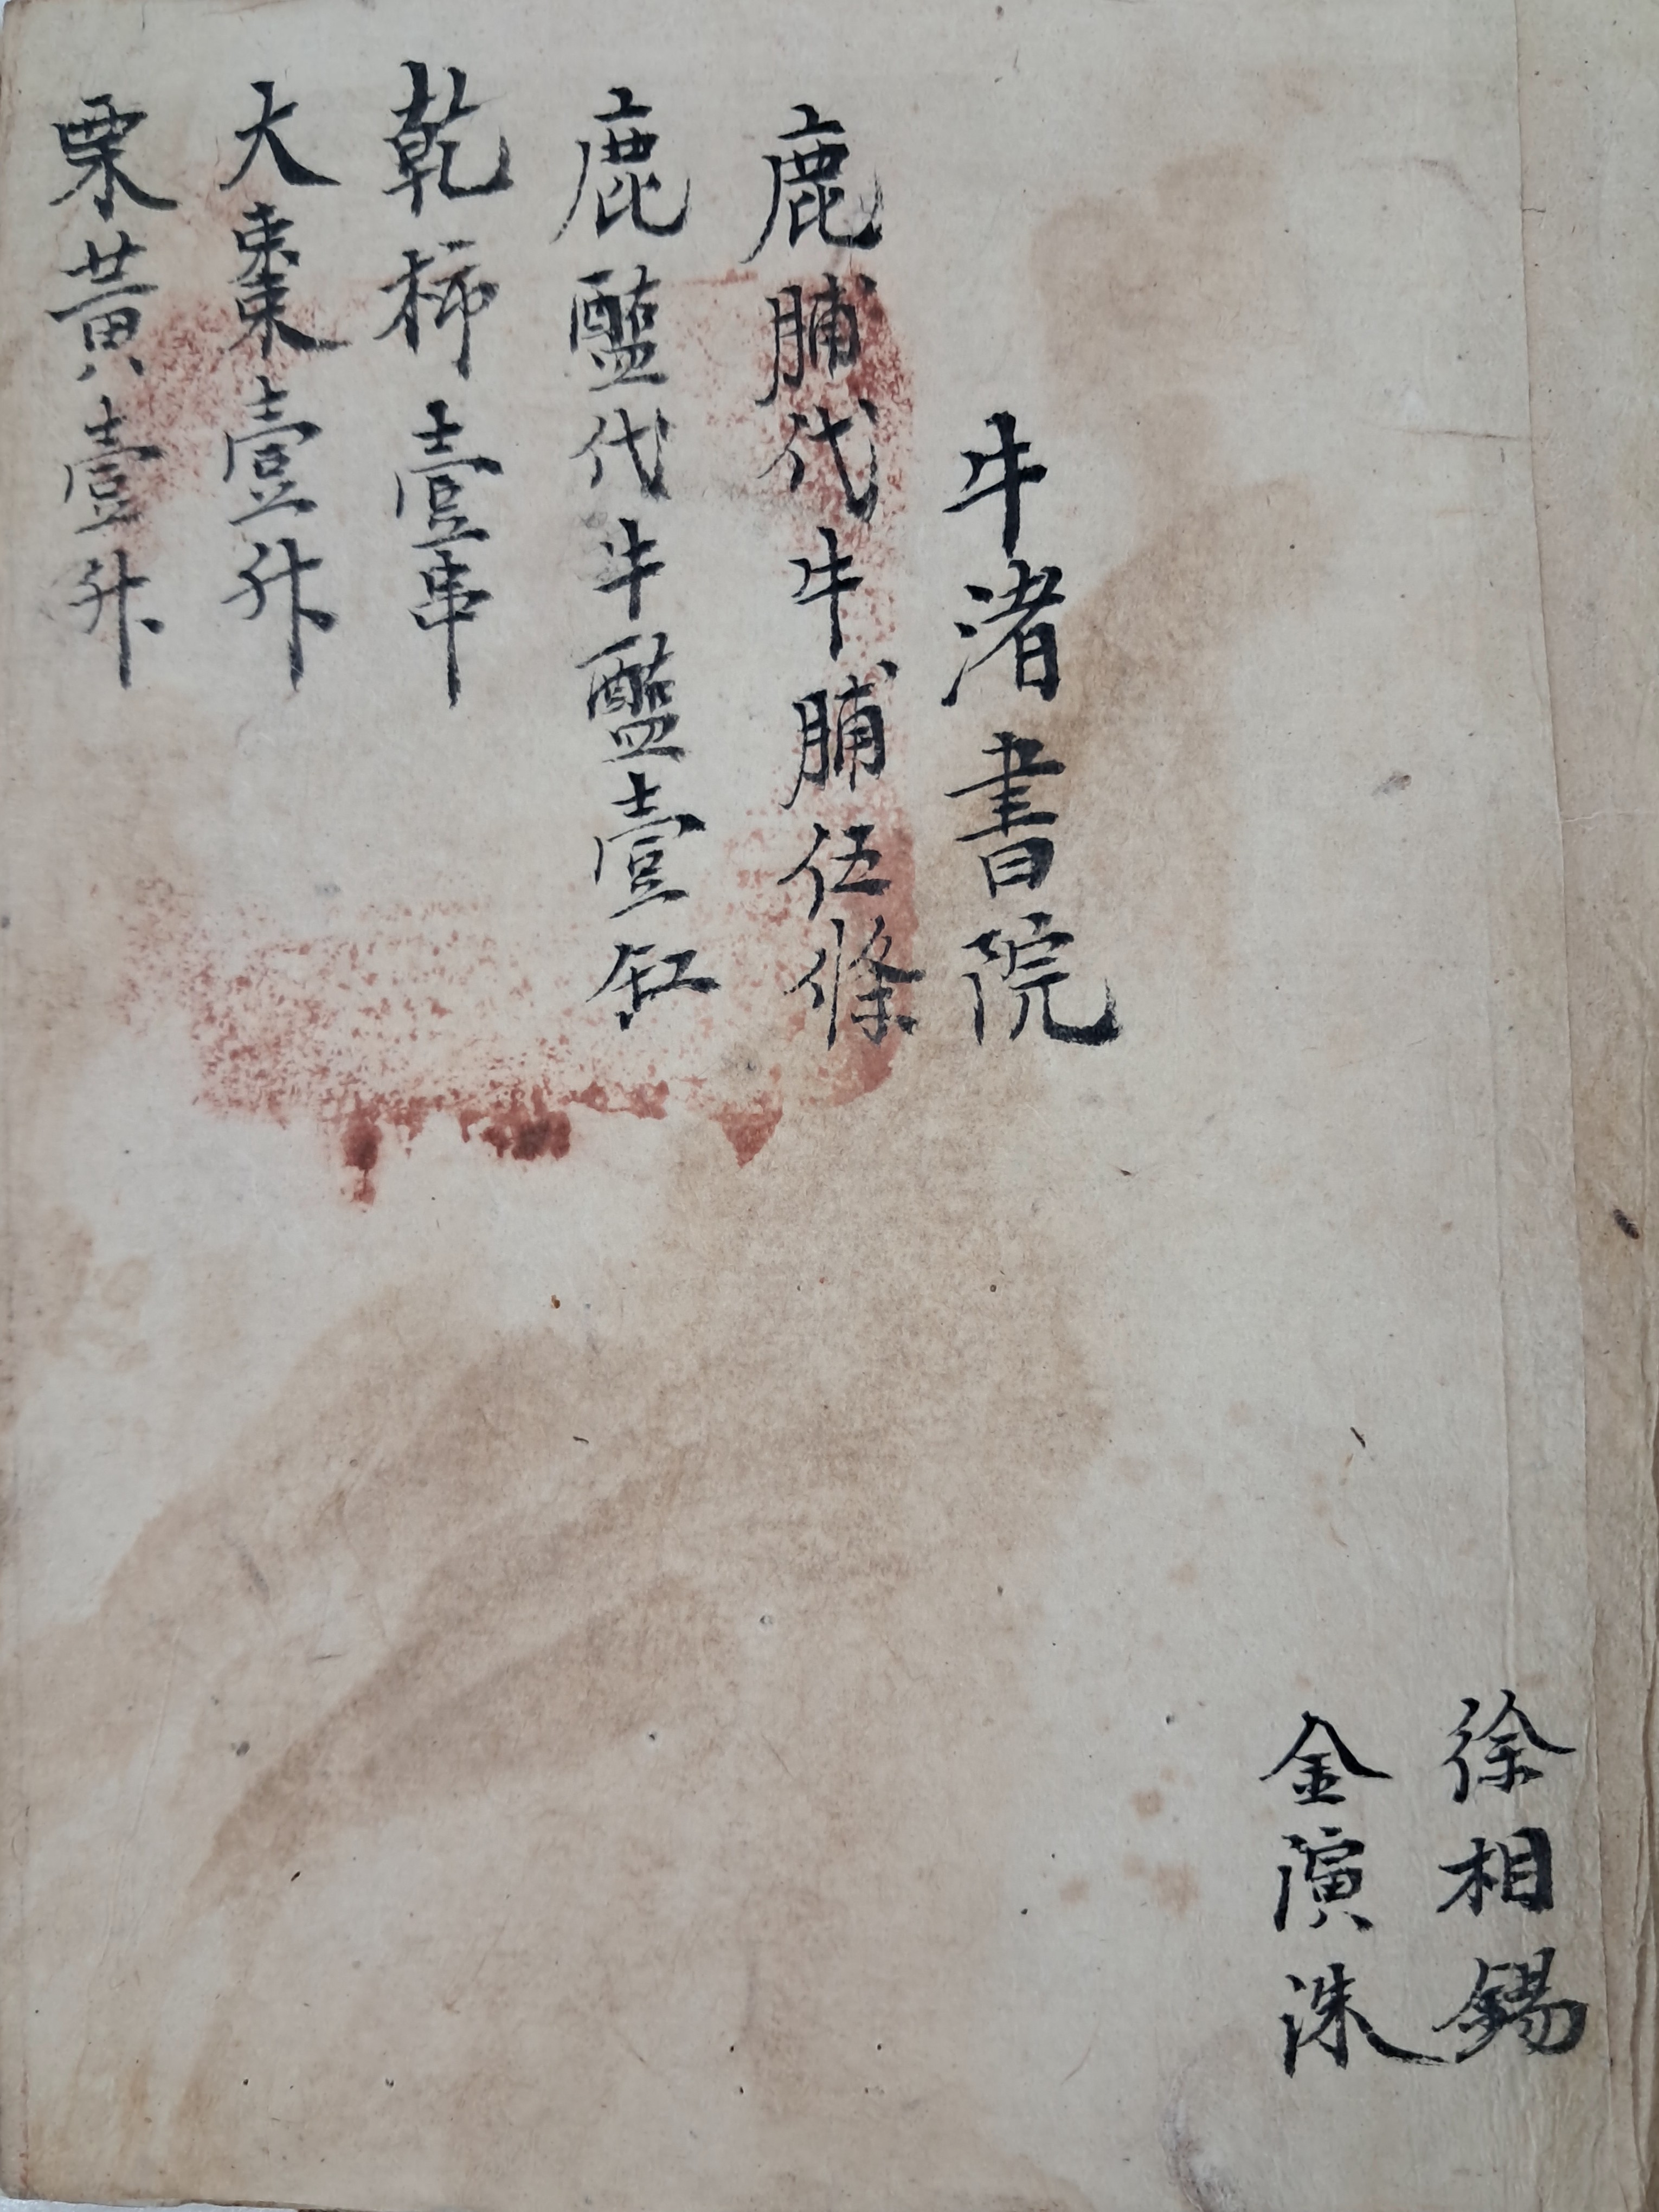 徐相錫
金演洙
牛渚書院
鹿脯代牛脯伍條
鹿醢代牛醢壹缸
乾柿壹串
大棗壹升
栗黃壹升